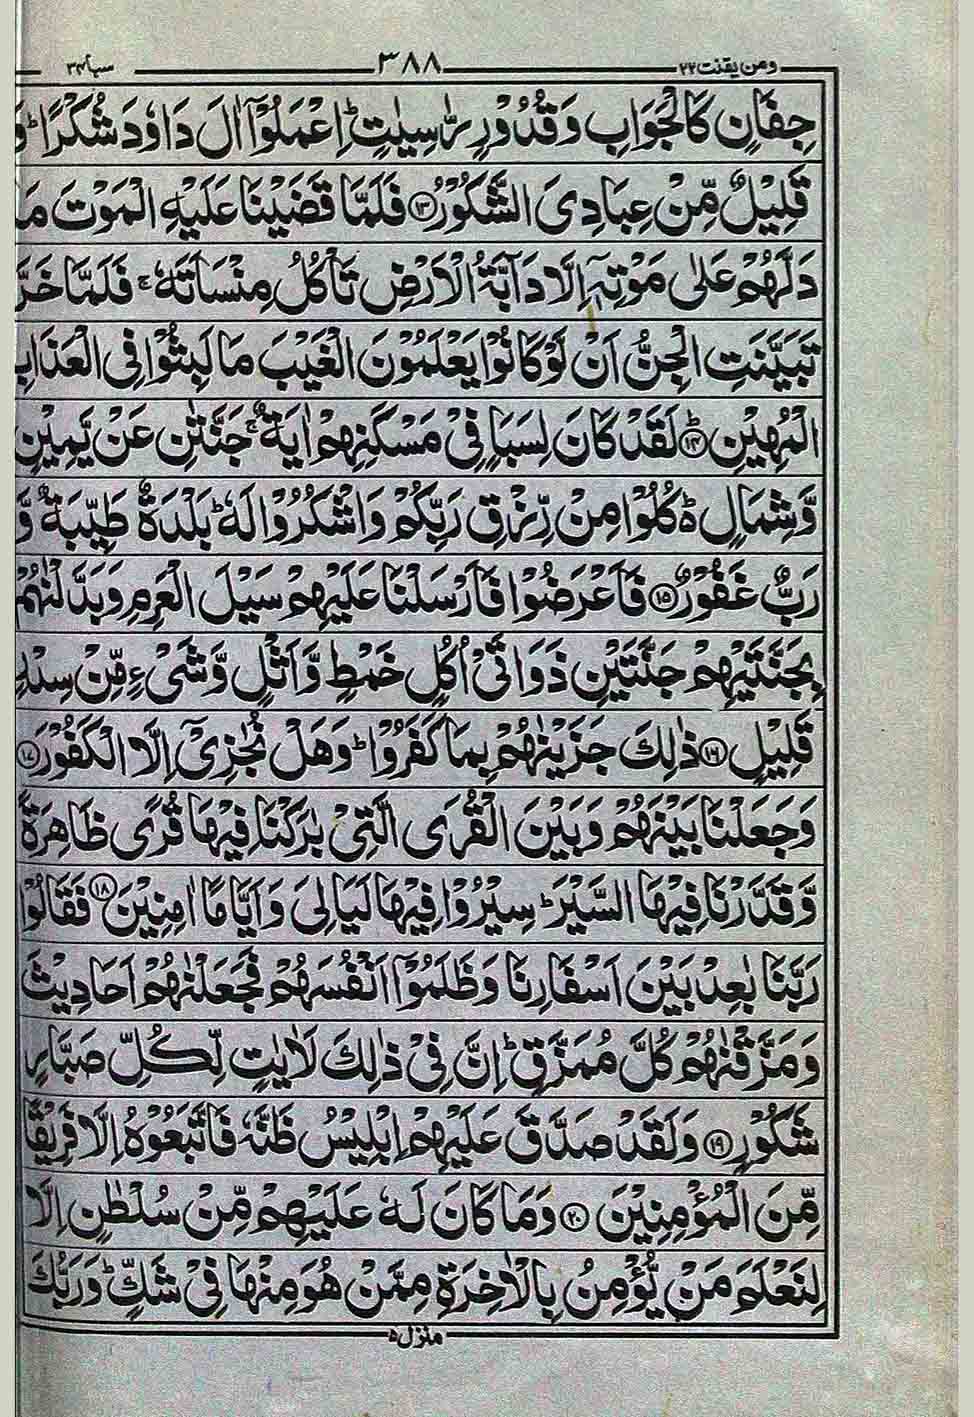 ومن یقنت ۲۲ ۳۸۸ سبا ۳۴
جِفَانٍ كَالْجَوَابِ وَقُدُوْرٍ رّٰسِيٰتٍ ؕ اِعْمَلُوْۤا اٰلَ دَاوٗدَ شُكْرًا ؕ وَ
قَلِيْلٌ مِّنْ عِبَادِيَ الشَّكُوْرُ ﴿۱۳﴾ فَلَمَّا قَضَيْنَا عَلَيْهِ الْمَوْتَ مَا
دَلَّهُمْ عَلٰى مَوْتِهٖۤ اِلَّا دَآبَّةُ الْاَرْضِ تَاْكُلُ مِنْسَاَتَهٗ ۚ فَلَمَّا خَرَّ
تَبَيَّنَتِ الْجِنُّ اَنْ لَّوْ كَانُوْا يَعْلَمُوْنَ الْغَيْبَ مَا لَبِثُوْا فِي الْعَذَابِ
الْمُهِيْنِ ﴿۱۴﴾ؕ لَقَدْ كَانَ لِسَبَاٍ فِيْ مَسْكَنِهِمْ اٰيَةٌ ۚ جَنَّتٰنِ عَنْ يَّمِيْنٍ
وَّشِمَالٍ ؕ۬ كُلُوْا مِنْ رِّزْقِ رَبِّكُمْ وَاشْكُرُوْا لَهٗ ؕ بَلْدَةٌ طَيِّبَةٌ وَّ
رَبٌّ غَفُوْرٌ ﴿۱۵﴾ فَاَعْرَضُوْا فَاَرْسَلْنَا عَلَيْهِمْ سَيْلَ الْعَرِمِ وَبَدَّلْنٰهُمْ
بِجَنَّتَيْهِمْ جَنَّتَيْنِ ذَوَاتَيْ اُكُلٍ خَمْطٍ وَّاَثْلٍ وَّشَيْءٍ مِّنْ سِدْرٍ
قَلِيْلٍ ﴿۱۶﴾ ذٰلِكَ جَزَيْنٰهُمْ بِمَا كَفَرُوْا ؕ وَهَلْ نُجٰزِيْۤ اِلَّا الْكَفُوْرَ ﴿۱۷﴾
وَجَعَلْنَا بَيْنَهُمْ وَبَيْنَ الْقُرَى الَّتِيْ بٰرَكْنَا فِيْهَا قُرًى ظَاهِرَةً
وَّقَدَّرْنَا فِيْهَا السَّيْرَ ؕ سِيْرُوْا فِيْهَا لَيَالِيَ وَاَيَّامًا اٰمِنِيْنَ ﴿۱۸﴾ فَقَالُوْا
رَبَّنَا بٰعِدْ بَيْنَ اَسْفَارِنَا وَظَلَمُوْۤا اَنْفُسَهُمْ فَجَعَلْنٰهُمْ اَحَادِيْثَ
وَمَزَّقْنٰهُمْ كُلَّ مُمَزَّقٍ ؕ اِنَّ فِيْ ذٰلِكَ لَاٰيٰتٍ لِّكُلِّ صَبَّارٍ
شَكُوْرٍ ﴿۱۹﴾ وَلَقَدْ صَدَّقَ عَلَيْهِمْ اِبْلِيْسُ ظَنَّهٗ فَاتَّبَعُوْهُ اِلَّا فَرِيْقًا
مِّنَ الْمُؤْمِنِيْنَ ﴿۲۰﴾ وَمَا كَانَ لَهٗ عَلَيْهِمْ مِّنْ سُلْطٰنٍ اِلَّا
لِنَعْلَمَ مَنْ يُّؤْمِنُ بِالْاٰخِرَةِ مِمَّنْ هُوَ مِنْهَا فِيْ شَكٍّ ؕ وَرَبُّكَ
منزل ۵